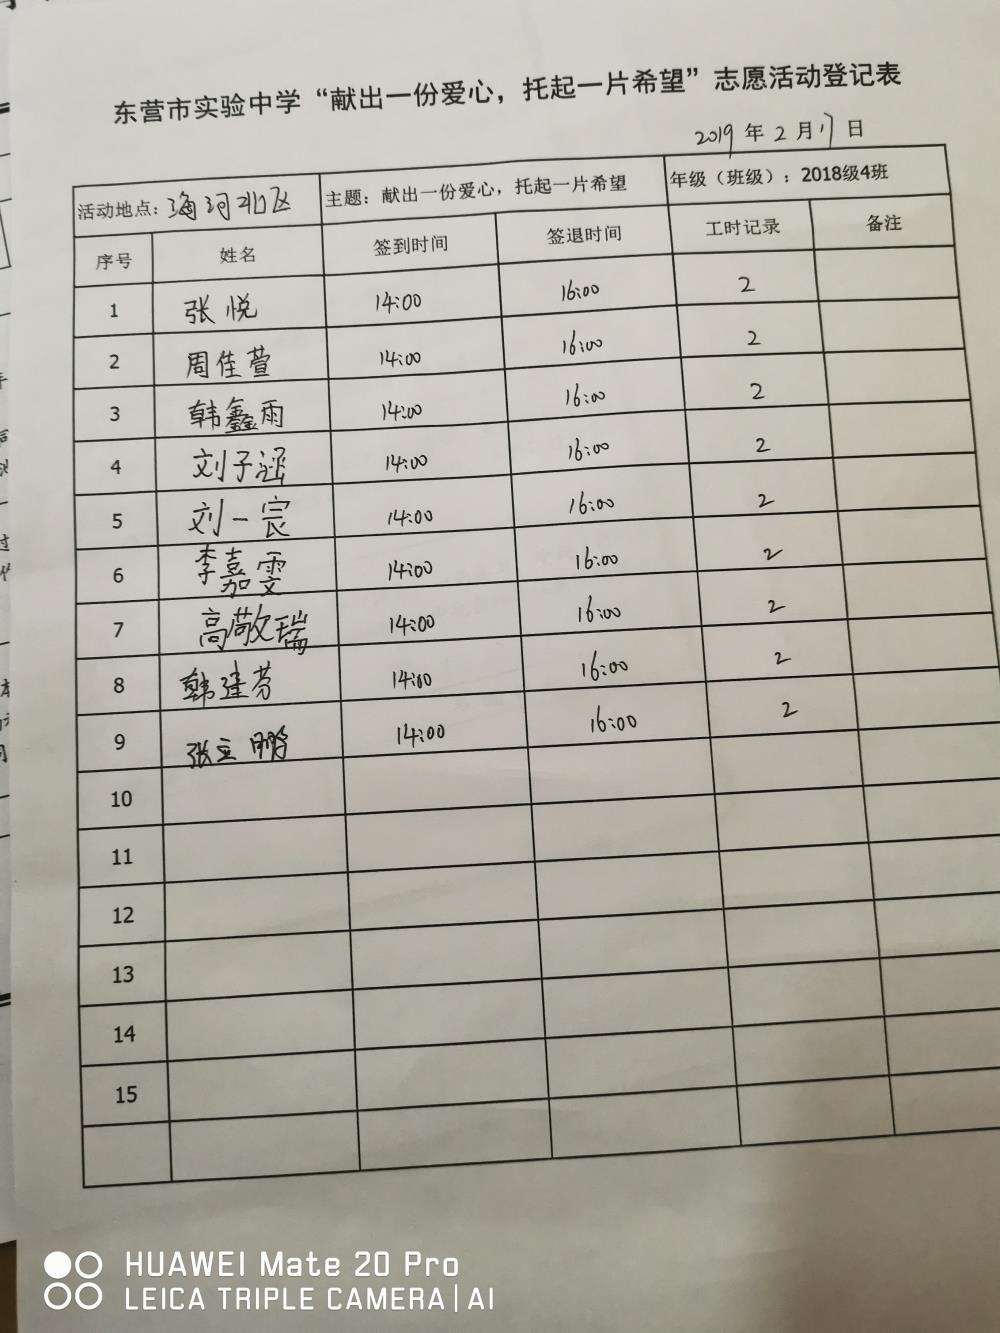 东营市实验中学“献出一份爱心，托起一片希望”志愿活动登记表
2019 年 2 月 17 日
活动地点：海河北区 主题：献出一份爱心，托起一片希望 年级（班级）：2018级4班
序号 姓名 签到时间 签退时间 工时记录 备注
1 张悦 14:00 16:00 2
2 周佳萱 14:00 16:00 2
3 韩鑫雨 14:00 16:00 2
4 刘子涵 14:00 16:00 2
5 刘一宸 14:00 16:00 2
6 李嘉雯 14:00 16:00 2
7 高敬瑞 14:00 16:00 2
8 韩建芬 14:00 16:00 2
9 张立鹏 14:00 16:00 2
10
11
12
13
14
15
HUAWEI Mate 20 Pro
LEICA TRIPLE CAMERA | AI